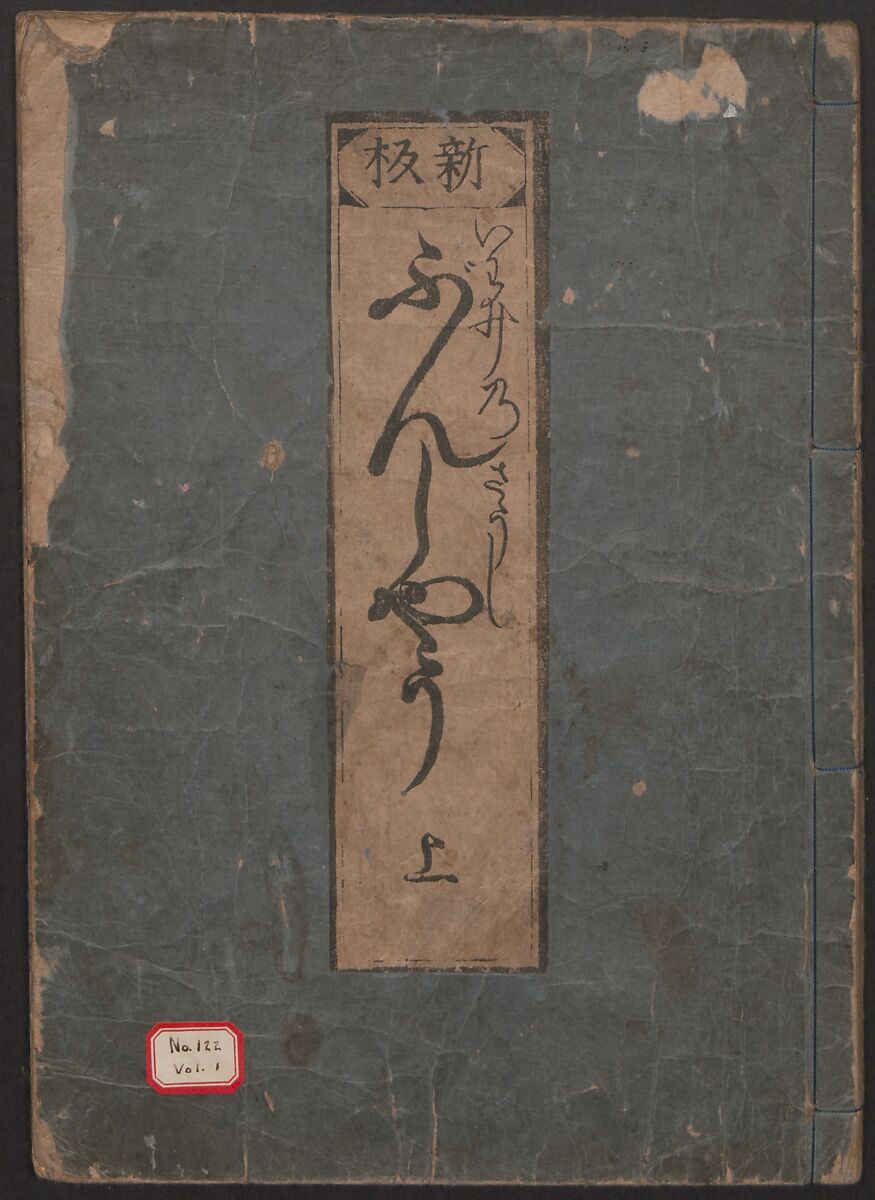 新板
いわゐ乃さうし
ぶんしやう
上
No. 122
Vol. 1